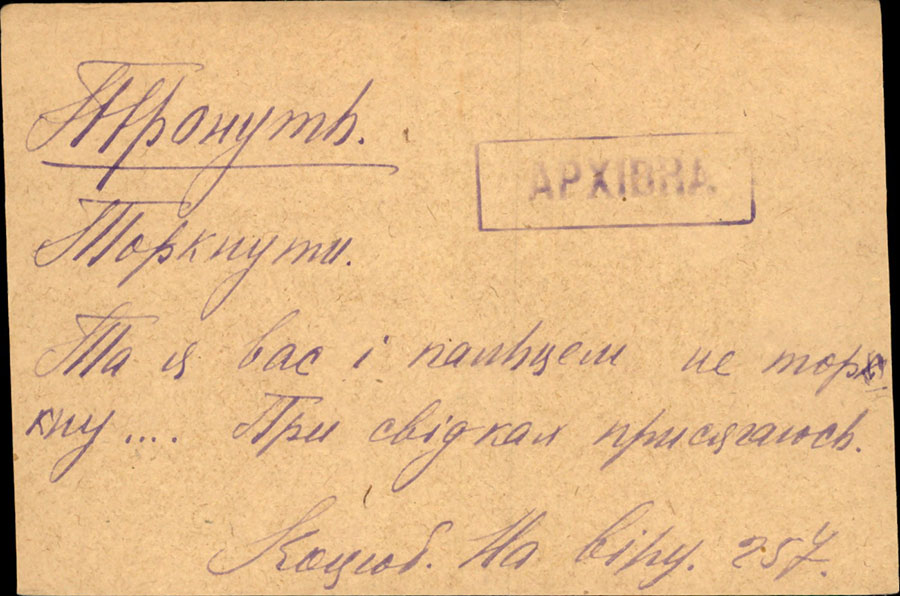 Тронуть.
АРХІВНА
Торкнути.
Та я вас і пальцем не торк-
кну.... При свідках присягаюсь.
Коцюб. На віру. 257.